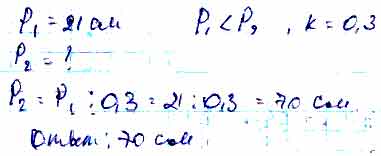 P₁ = 21 см P₁ < P₂ , k = 0,3
P₂ = ?
P₂ = P₁ : 0,3 = 21 : 0,3 = 70 см.
Ответ: 70 см.